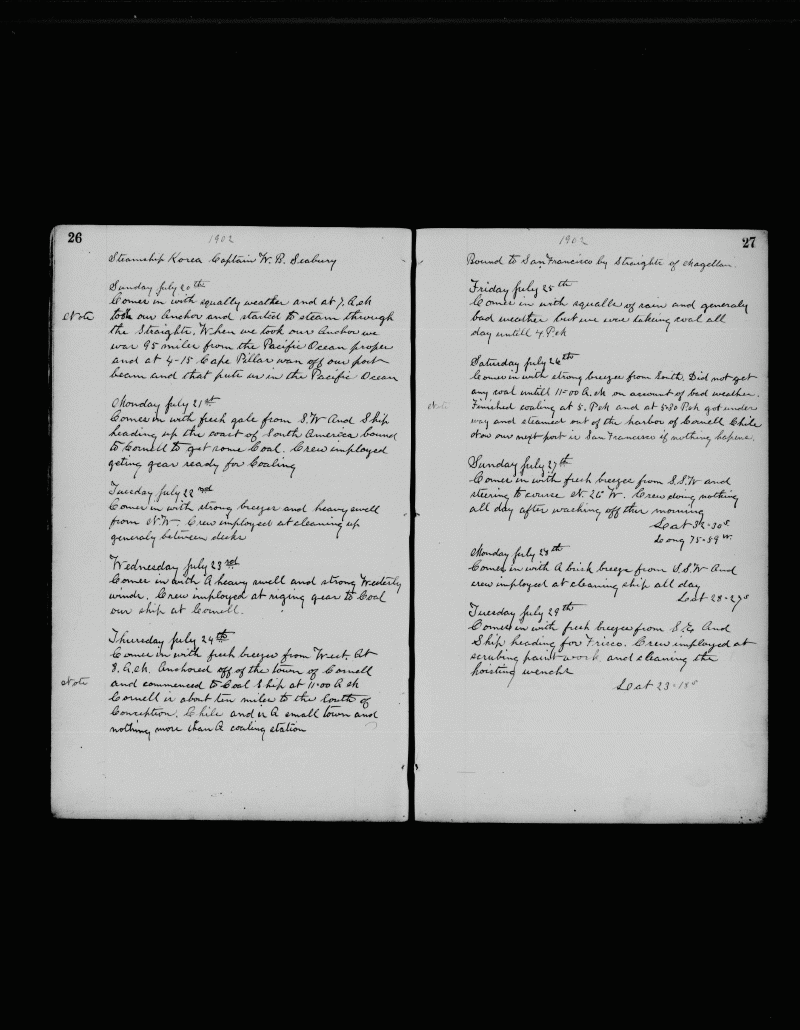 26
1902
Steamship Korea Captain W. B. Seabury
Sunday July 20th
Comes in with squally weather and at 7. A.M
Note
took our Anchor and started to steam through
the Straights. When we took our Anchor we
was 95 miles from the Pacific Ocean proper
and at 4-15 Cape Pillar was off our port
beam and that puts us in the Pacific Ocean
Monday July 21st
Comes in with fresh gale from S.W And Ship
heading up the coast of South America bound
to Cornell to get some Coal. Crew employed
geting gear ready for Coaling
Tuesday July 22nd
Comes in with strong breeze and heavy swell
from N.W. Crew employed at cleaning up
generaly between decks
Wednesday July 23rd
Comes in with A heavy swell and strong Westerly
winds. Crew employed at riging gear to Coal
our ship at Cornell.
Thursday July 24th
Comes in with fresh breeze from West. At
8. A.M. Anchored off of the town of Cornell
Note
and commenced to Coal Ship at 11-00 A M
Cornell is about ten miles to the South of
Conception. Chile and is A small town and
nothing more than A coaling station
27
1902
Bound to San Francisco by Straights of Magellan.
Friday July 25th
Comes in with squalls of rain and generaly
bad weather but we was taking coal all
day untill 4. P.M
Saturday July 26th
Comes in with strong breeze from South. Did not get
any coal untill 11-00 A.M on account of bad weather.
Note
Finished coaling at 5. P.M and at 5-30 P.M got under
way and steamed out of the harbor of Cornell Chile
Now our next port is San Francisco if nothing happens.
Sunday July 27th
Comes in with fresh breeze from S.S.W and
steering to course N. 26° W. Crew doing nothing
all day after washing off this morning
Lat 32-30 S
Long 75-59 W.
Monday July 28th
Comes in with A brisk breeze from S.S.W And
crew employed at cleaning ship all day
Lat 28-27 S
Tuesday July 29th
Comes in with fresh breeze from S.E. And
Ship heading for Frisco. Crew imployed at
scrubing paint work and cleaning the
hoisting wenchs
Lat 23-18 S